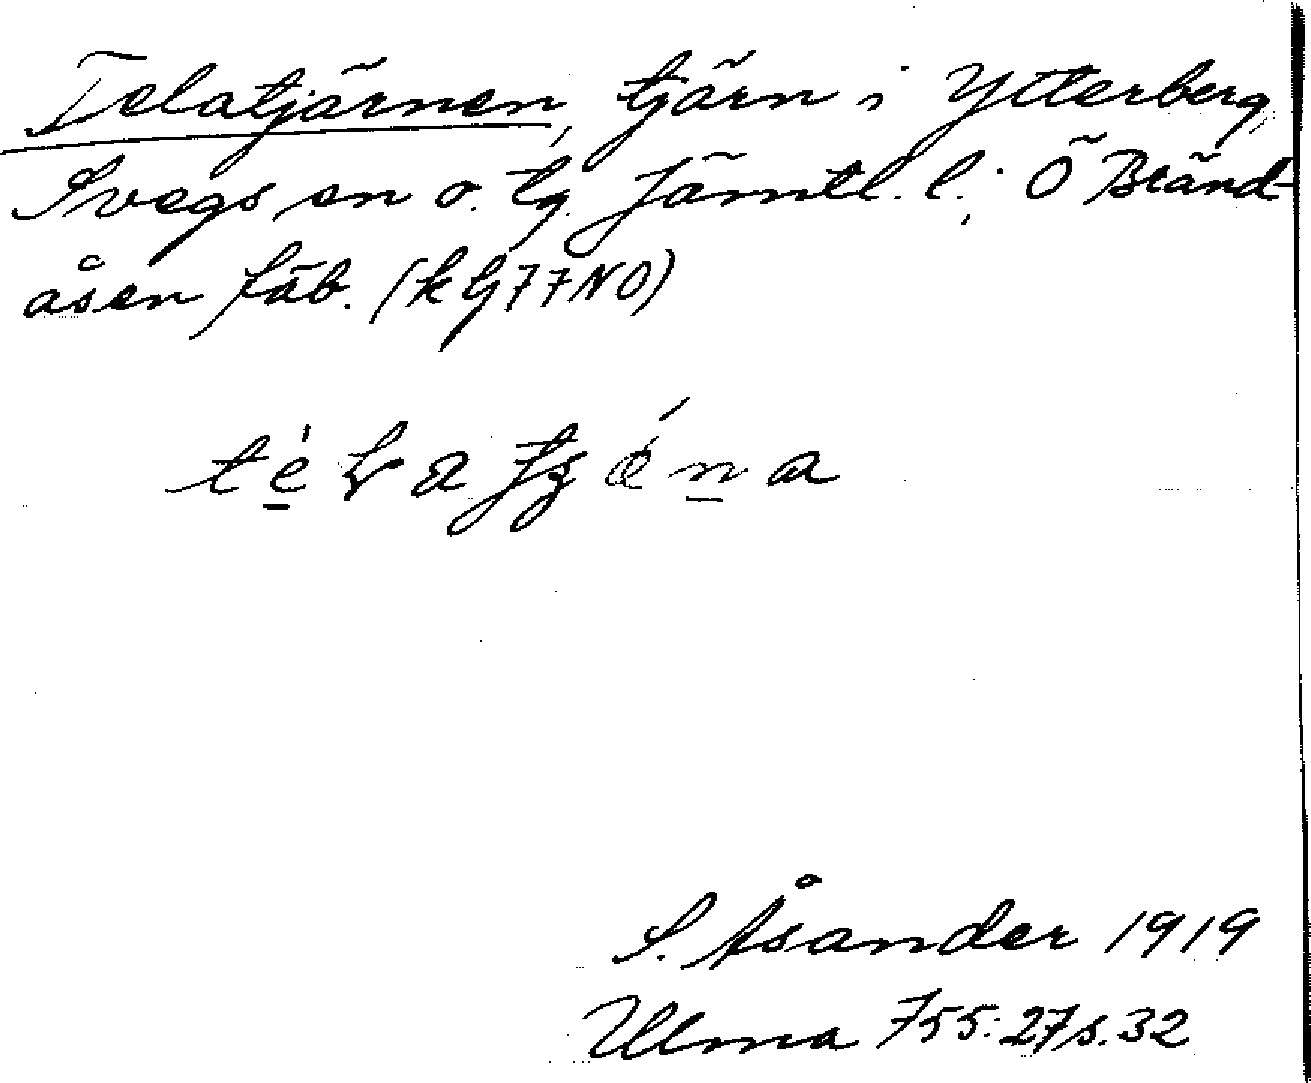 Telatjärnen, tjärn i Ytterberg,
Svegs sn o. tg. Jämtl. l.; Ö Bränd-
åsen fäb. (k G77NO)
S. Åsander 1919
Ulma 755:27 s. 32